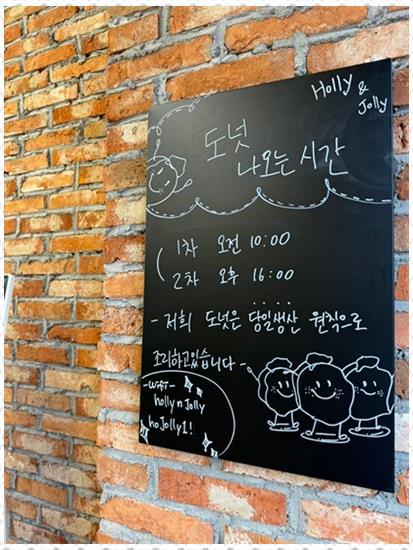 Holly &
Jolly
도넛
나오는 시간
1차 오전 10:00
2차 오후 16:00
- 저희 도넛은 당일생산 원칙으로
조리하고있습니다 -
-WIFI-
holly n Jolly
hoJolly1!